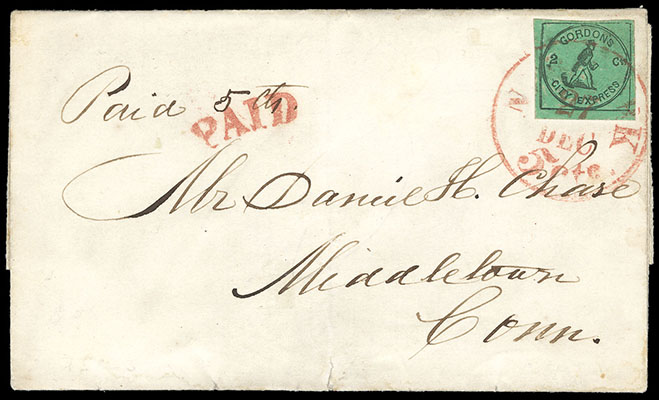 GORDON'S
2 Cts
CITY EXPRESS
Paid 5 cts.
PAID
N K
27
DEC
5 cts
Mr Daniel H. Chase
Middletown
Conn.